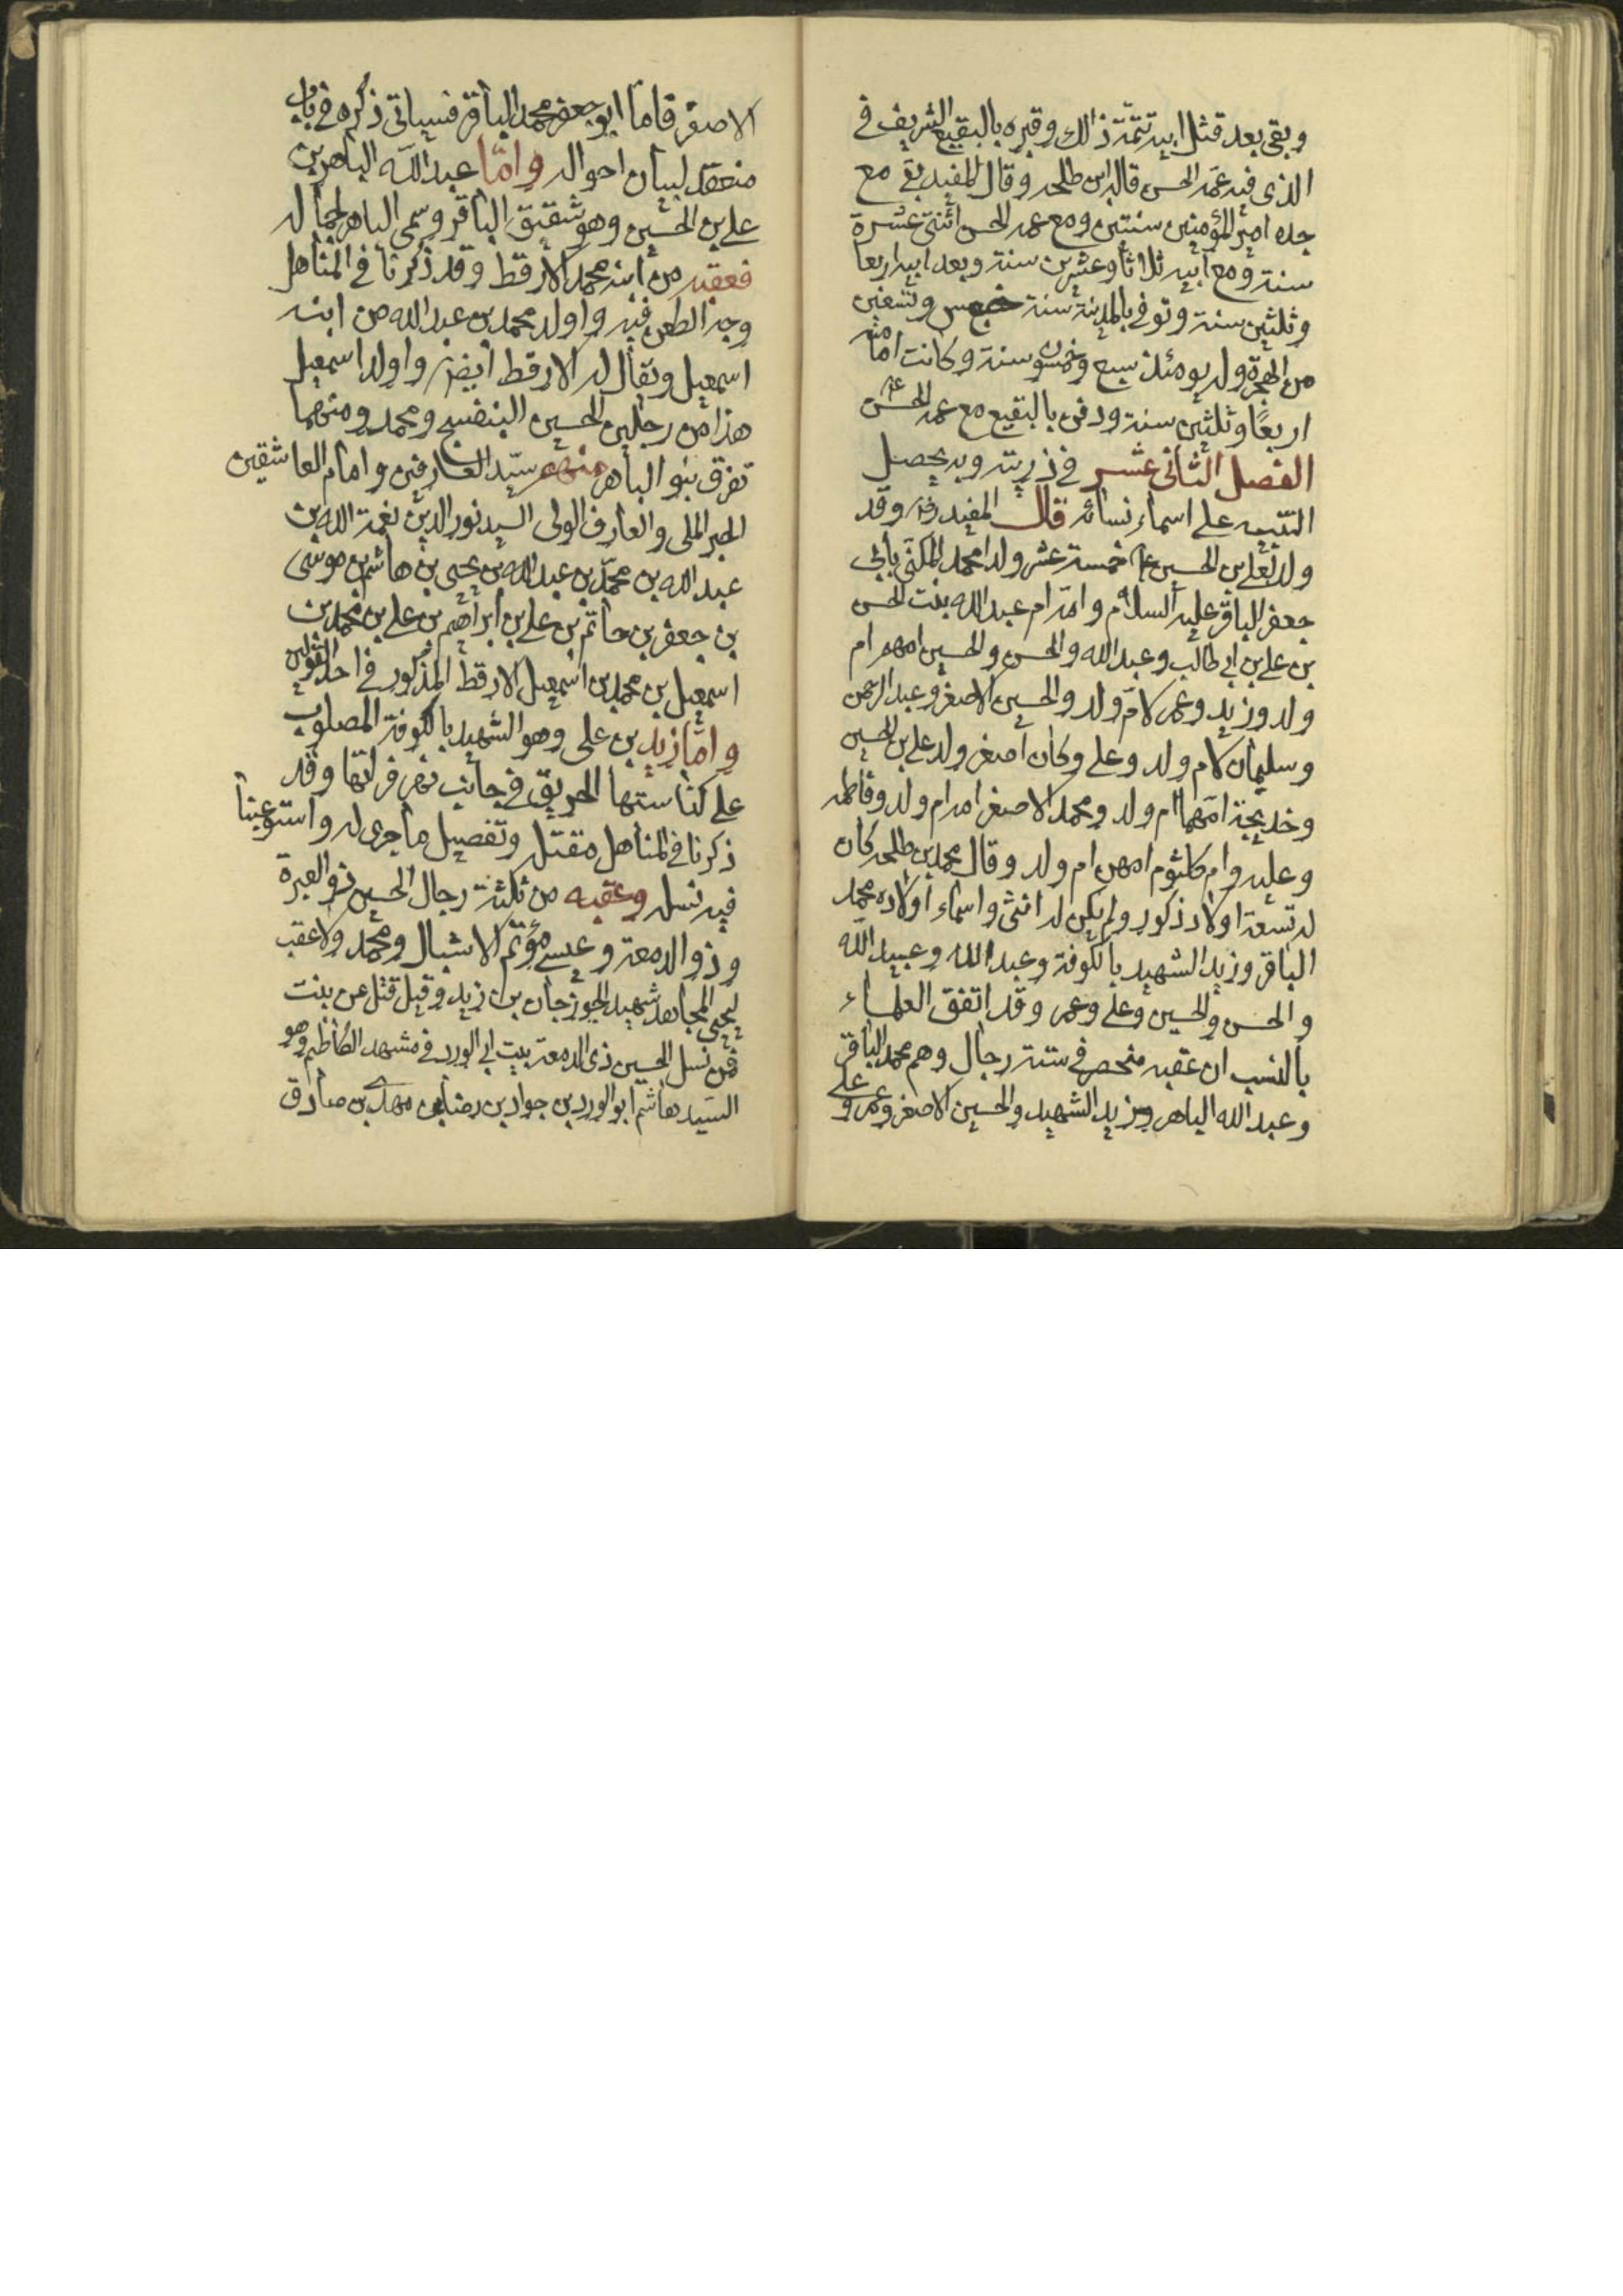 وبقى بعد قتل ابيه تتمّة ذالك وقبره بالبقيع الشريف في
الذى فيه عمّه الحسن قاله ابن طلحه وقال المفيد بقى مع
جده امير المؤمنين سنتين ومع عمه الحسن اثنتى عشرة
سنة ومع ابيه ثلاثا وعشرين سنة وبعد ابيه اربعا
وثلثين سنة وتوفى بالمدينة سنة خمس وتسعين
من الهجرة وله يومئذ سبع وخمسون سنة وكانت امامته
اربعًا وثلثين سنة ودفن بالبقيع مع عمه الحسن ع
الفصل الثانى عشر فى ذريته وبه يحصل
التنبيه على اسماء نسائه قال المفيد ره وقد
ولد لعلى بن الحسين ع خمسة عشر ولدا محمد المكنّى بابى
جعفر الباقر عليه السلام وامّه ام عبد الله بنت الحسن
بن على بن ابى طالب وعبد الله والحسن والحسين امهم ام
ولد وزيد وعمر لامّ ولد والحسين الاصغر وعبد الرحمن
وسليمان لام ولد وعلى وكان اصغر ولد على بن الحسين
وخديجة امّهما ام ولد ومحمد الاصغر امه ام ولد وفاطمه
وعليه وام كلثوم امهن ام ولد وقال محمد بن طلحه كان
له تسعة اولاد ذكور ولم يكن له انثى واسماء اولاده محمد
الباقر وزيد الشهيد بالكوفة وعبد الله وعبيد الله
والحسن والحسين وعلى وعمر وقد اتفق العلماء
بالنسب ان عقبه منحصر فى ستة رجال وهم محمد الباقر
وعبد الله الباهر وزيد الشهيد والحسين الاصغر وعمر وعلى
الاصغر فاما ابو جعفر محمد الباقر فسياتى ذكره فى باب
منعقد لبيان احواله وامّا عبد الله الباهر بن
على بن الحسين وهو شقيق الباقر وسمى الباهر لجماله
فعقبه من ابنه محمد الارقط وقد ذكرنا فى المناهل
وجه الطعن فيه واولد محمد بن عبد الله من ابنه
اسمعيل ويقال له الارقط ايضا واولد اسمعيل
هذا من رجلين الحسين البنفسج ومحمد ومنهما
تفرق بنو الباهر منهم سيّد العارفين وامام العاشقين
الحبر الملى والعارف الولى السيد نور الدين نعمة الله بن
عبد الله بن محمّد بن عبد الله بن يحيى بن هاشم بن موسى
بن جعفر بن حاتم بن على بن ابراهيم بن على بن محمد بن
اسمعيل بن محمد بن اسمعيل الارقط المذكور فى احد القولين
وامّا زيد بن على وهو الشهيد بالكوفة المصلوب
على كناستها الحريق فى جانب نهر فراتها وقد
ذكرنا فى المناهل مقتله وتفصيل ما جرى له واستوعبنا
فيه نسله وعقبه من ثلثة رجال الحسين ذو العبرة
وذو الدمعة وعيسى مؤتم الاشبال ومحمد ولا عقب
ليحيى المجاهد شهيد الجوزجان بن زيد وقيل قتل عن بنت
فمن نسل الحسين ذى الدمعة بيت ابى الورد فى مشهد الكاظم وهو
السيد هاشم ابو الورد بن جواد بن رضا بن مهدى بن صادق